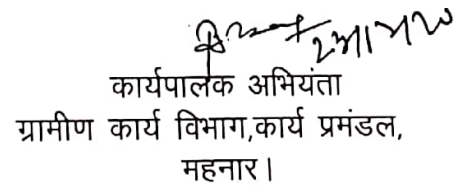 कार्यपालक अभियंता
ग्रामीण कार्य विभाग,कार्य प्रमंडल,
महनार।